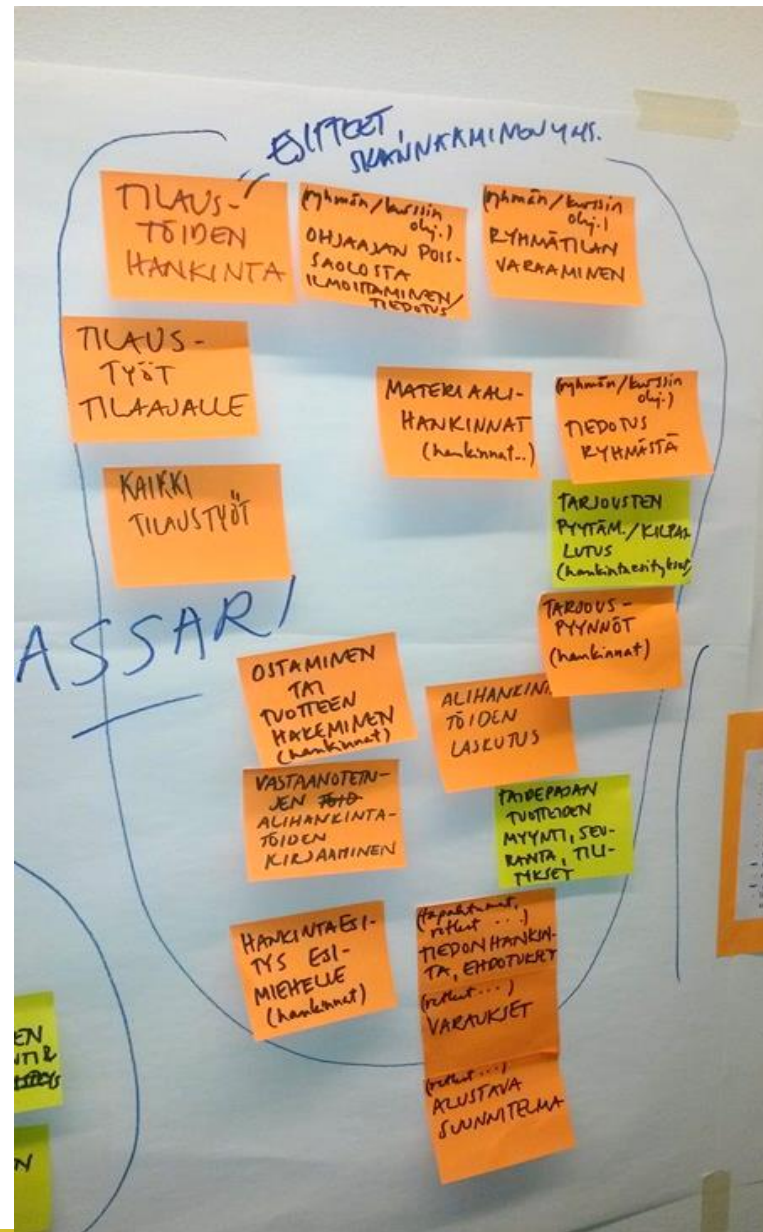 ESITTEET,
SKANNAAMINEN YMS.
TILAUS-
TÖIDEN
HANKINTA
(ryhmän/kurssin
ohj.)
OHJAAJAN POIS-
SAOLOSTA
ILMOITTAMINEN/
TIEDOTUS
(ryhmän/kurssin
ohj.)
RYHMÄTILAN
VARAAMINEN
TILAUS-
TYÖT
TILAAJALLE
MATERIAALI-
HANKINNAT
(hankinnat..)
(ryhmän/kurssin
ohj.)
TIEDOTUS
RYHMÄSTÄ
KAIKKI
TILAUSTYÖT
TARJOUSTEN
PYYTÄM./KILPAI
LUTUS
(hankintaesitykset)
ASSARI
TARJOUS-
PYYNNÖT
(hankinnat)
OSTAMINEN
TAI
TUOTTEEN
HAKEMINEN
(hankinnat)
ALIHANKINTA
TÖIDEN
LASKUTUS
VASTAANOTETTU-
JEN
ALIHANKINTA-
TÖIDEN
KIRJAAMINEN
TAIDEPAJAN
TUOTTEIDEN
MYYNTI, SEU-
RANTA, TILI-
TYKSET
HANKINTAESI-
TYS ESI-
MIEHELLE
(hankinnat)
(tapahtumat,
retket ...)
TIEDONHANKIN-
TA, EHDOTUKSET
(retket ...)
VARAUKSET
(retket ...)
ALUSTAVA
SUUNNITELMA
EN
N